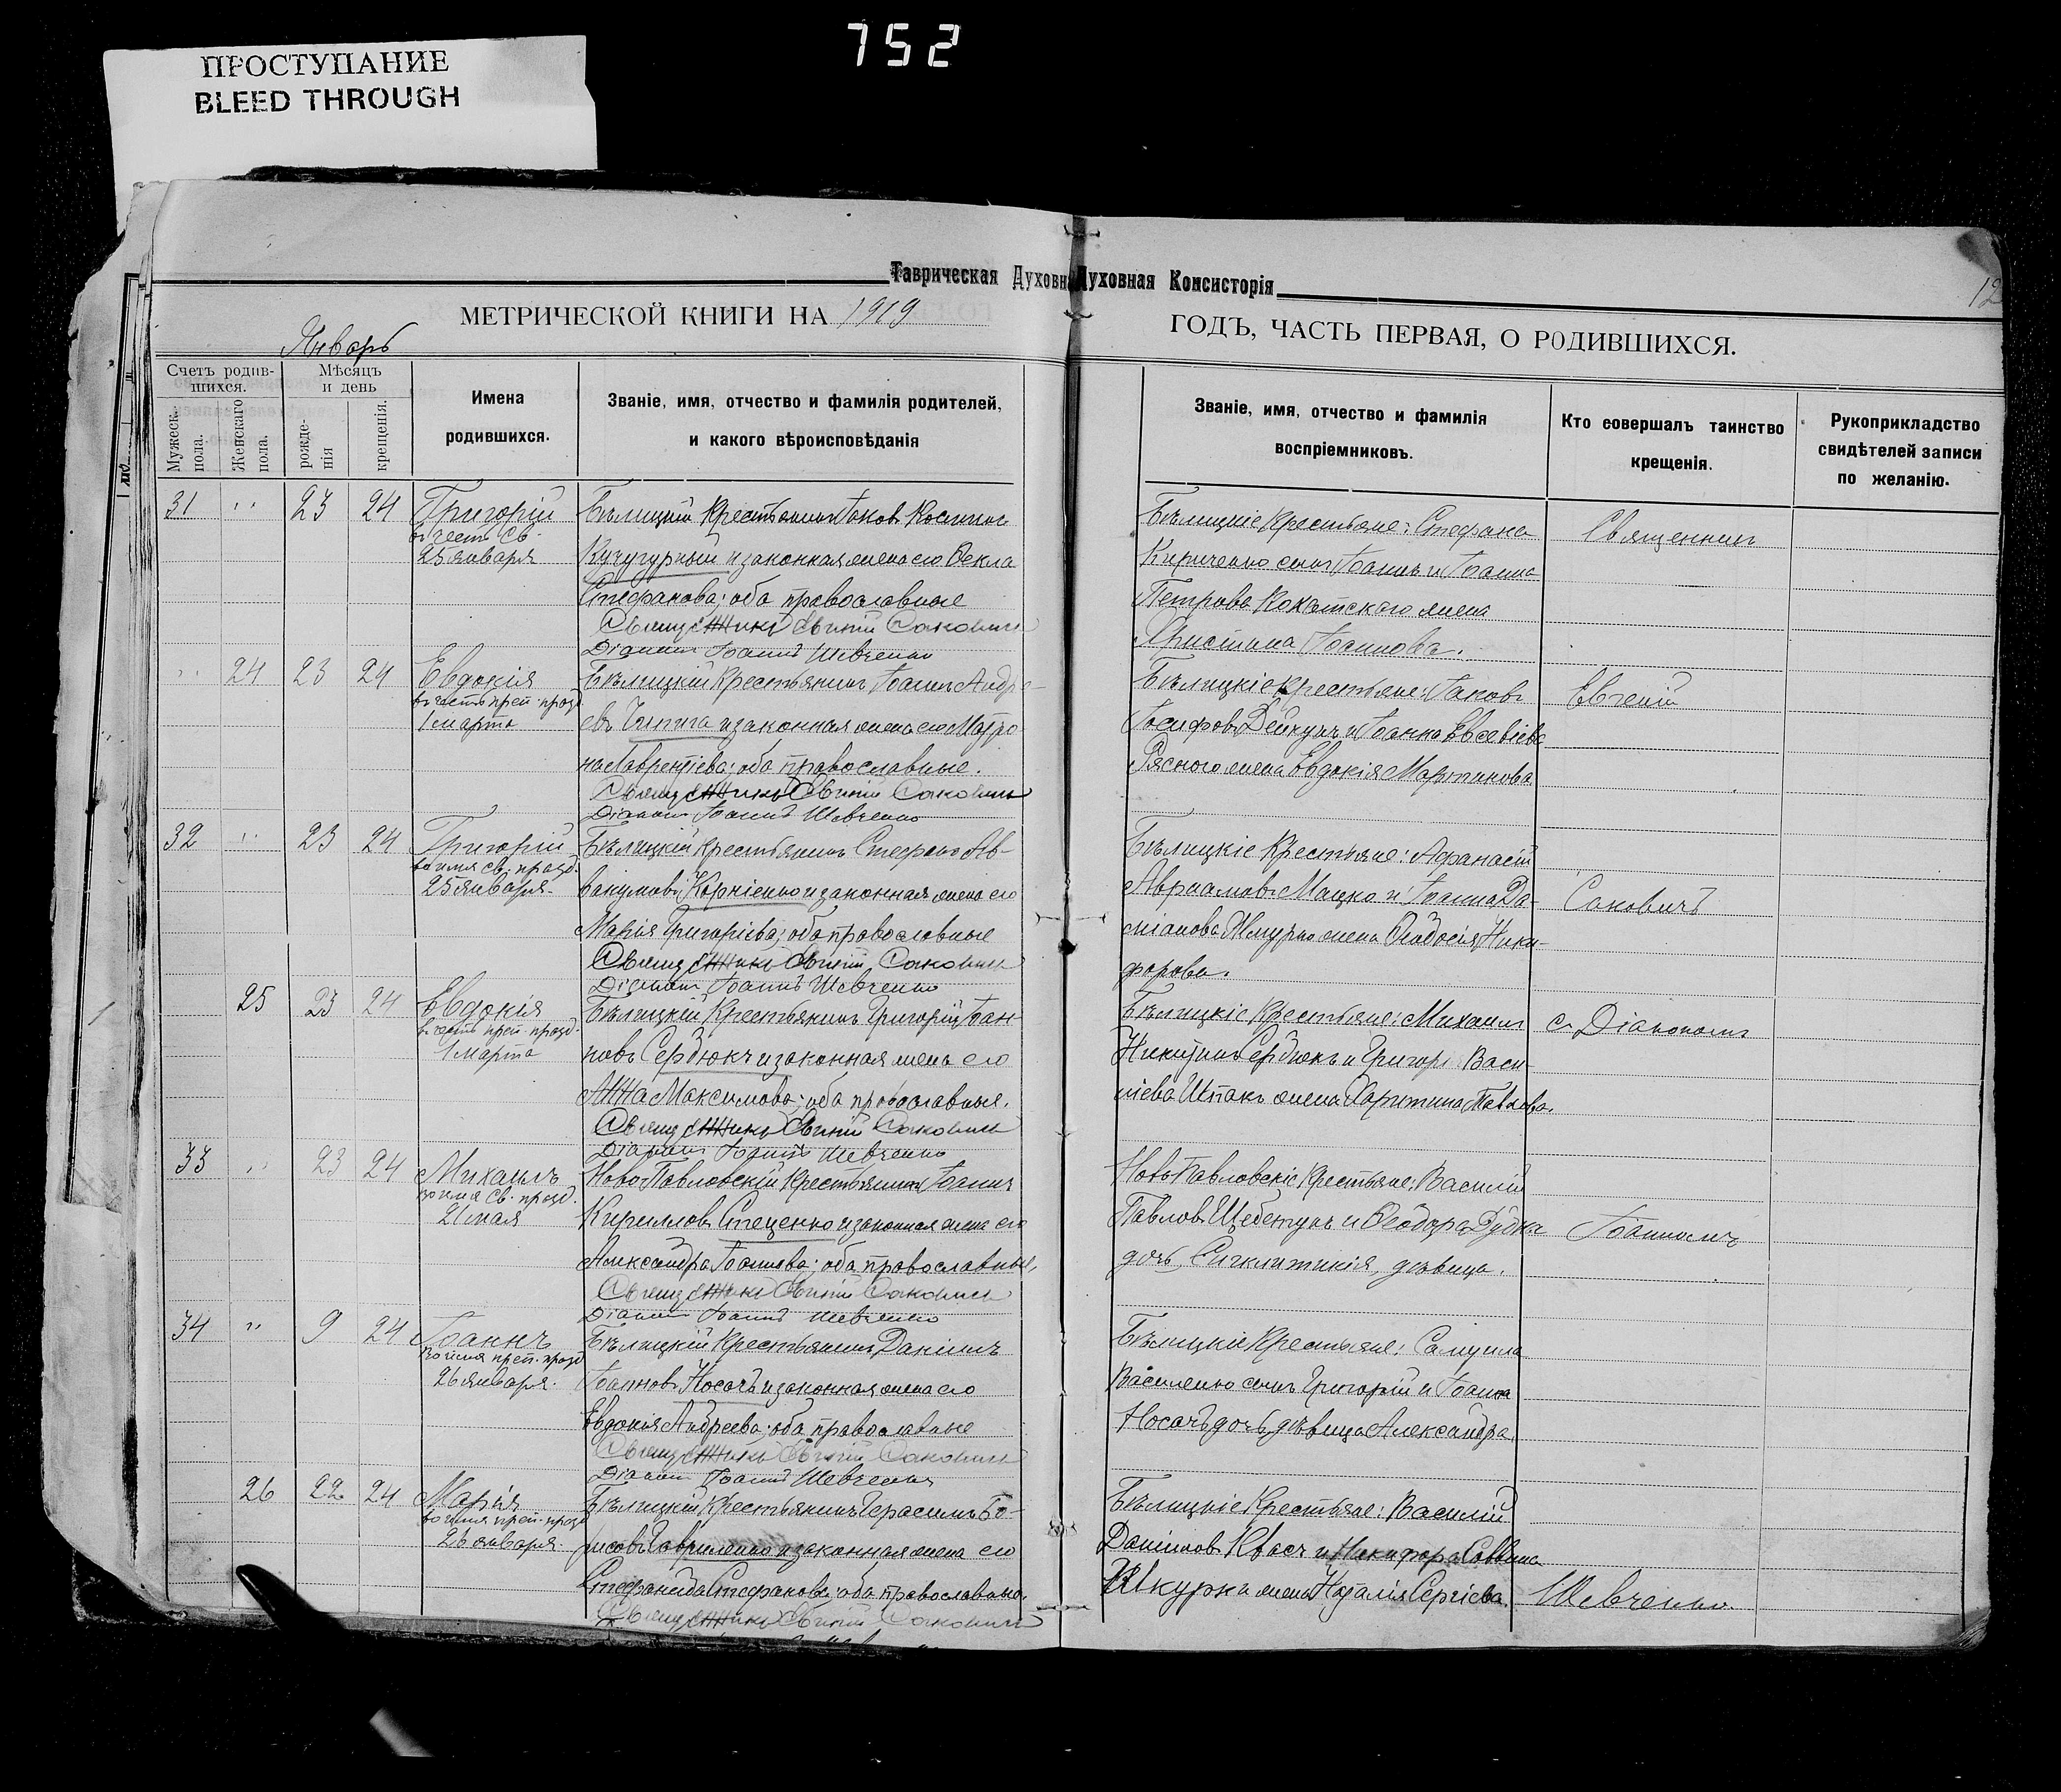 752
ПРОСТУПАНИЕ
BLEED THROUGH
Таврическая Духовн
Духовная Консисторія
12
МЕТРИЧЕСКОЙ КНИГИ НА 1919
ГОДЪ, ЧАСТЬ ПЕРВАЯ, О РОДИВШИХСЯ.
Январь
Счетъ родив-
шихся.
Мѣсяцъ
и день
Мужеск.
пола.
Женскаго
пола.
рожде-
нія
крещенія.
Имена
родившихся.
Званіе, имя, отчество и фамилія родителей,
и какого вѣроисповѣданія
Званіе, имя, отчество и фамилія
воспріемниковъ.
Кто совершалъ таинство
крещенія.
Рукоприкладство
свидѣтелей записи
по желанію.
31 " 23 24 Григорій
в честь Св.
25 января
Бѣлицкій Крестьянинъ Іаковъ Косминъ
Кучугурный и законная жена его Ѳекла
Стефанова; оба православные
Священникъ Евгеній Саковичъ
Діаконъ Іоаннъ Шевченко
Бѣлицкіе Крестьяне: Стефана
Кириченко сынъ Іоаннъ и Іоанна
Петрова жена
Христина Іоаннова.
Священникъ
" 24 23 24 Евдокія
въ честь преп. празд.
1 марта
Бѣлицкій Крестьянинъ Іоаннъ Андре-
евъ Чипига и законная жена его Матро
на Лаврентіева; оба православные.
Священникъ Евгеній Саковичъ
Діаконъ Іоаннъ Шевченко
Бѣлицкіе Крестьяне: Іаковъ
Іосифовъ Дейкунъ и Іоанна Евсевіева
Рясного жена Евдокія Мартинова
Евгеній
32 " 23 24 Григорій
во имя св. празд.
25 января
Бѣлицкій крестьянинъ Стефанъ Ав-
вакумовъ Корніенко и законная жена его
Марія Григоріева; оба православные
Священникъ Евгеній Саковичъ
Діаконъ Іоаннъ Шевченко
Бѣлицкіе Крестьяне: Аѳанасій
Авраамовъ Мацко и Іоанна Да-
міанова жена Ѳеодосія Ники-
форова.
Саковичъ
25 23 24 Евдокія
в честь преп. празд.
1 марта
Бѣлицкій Крестьянинъ Григорій Іоан
новъ Сердюкъ и законная жена его
Анна Максимова; оба православные.
Священникъ Евгеній Саковичъ
Діаконъ Іоаннъ Шевченко
Бѣлицкіе Крестьяне: Михаилъ
Никитинъ Сердюкъ и Григорі Васи-
ліева Шпакъ жена Харитина Павлова.
с Діакономъ
33 " 23 24 Михаилъ
во имя св. празд.
21 мая
Ново-Павловскій Крестьянинъ Іоаннъ
Кирилловъ Стеценко и законная жена его
Александра Іоаннова; оба православные,
Священникъ Евгеній Саковичъ
Діаконъ Іоаннъ Шевченко
Ново-Павловскіе Крестьяне: Василій
Павловъ Щебетунъ и Ѳеодора Дудка
дочь Сигклитикія, дѣвица.
Іоанномъ
34 " 9 24 Іоаннъ
во имя преп. празд
26 января.
Бѣлицкій Крестьянинъ Даніилъ
Іоанновъ Носачъ и законная жена его
Евдокія Андреева; оба православные
Священникъ Евгеній Саковичъ
Діаконъ Іоаннъ Шевченко
Бѣлицкіе Крестьяне: Самуила
Василенко сынъ Григорій и Іоанна
Носачъ дочь, дѣвица Александра.
26 22 24 Марія
во имя преп. празд
26 января
Бѣлицкій Крестьянинъ Герасимъ Бо-
рисовъ Гавриленко и законная жена его
Стефанида Стефанова; оба православные.
Священникъ Евгеній Саковичъ
Бѣлицкіе Крестьяне: Василій
Даніиловъ Квасъ и Никифора Саввина
Шкурка жена Наталія Сергіева.
Шевченко.